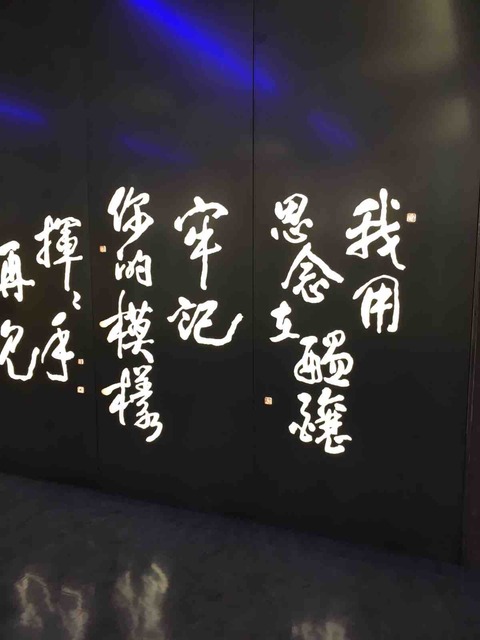 我用
思念在醞釀
牢記
你的模樣
揮々手
再見